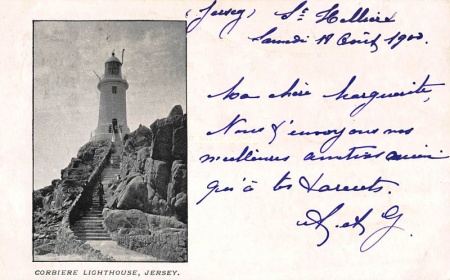 (Jersey) St Hélliers
Samedi 18 Août 1900.
Ma chère Marguerite,
Nous t'envoyons nos
meilleures amitiés ainsi
qu'à tes Parents.
CORBIERE LIGHTHOUSE, JERSEY.